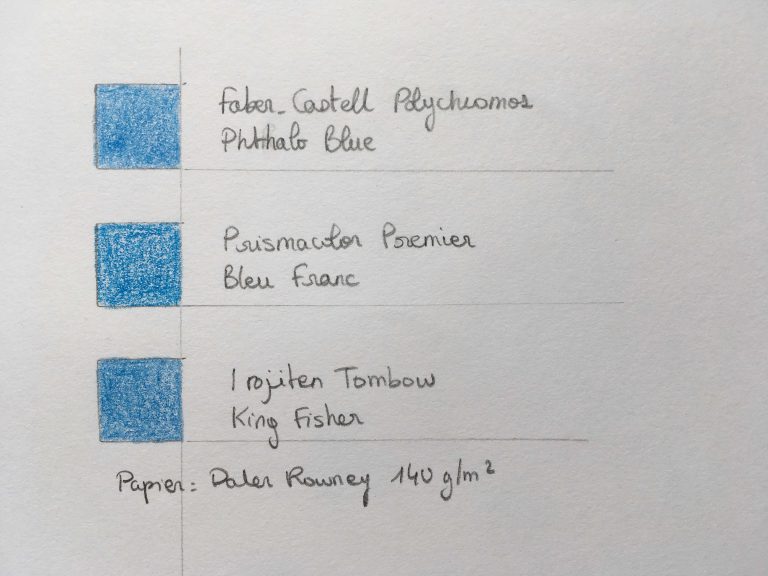 Faber-Castell Polychromos
Phthalo Blue
Prismacolor Premier
Bleu Franc
Irojiten Tombow
King Fisher
Papier: Daler Rowney 140 g/m²